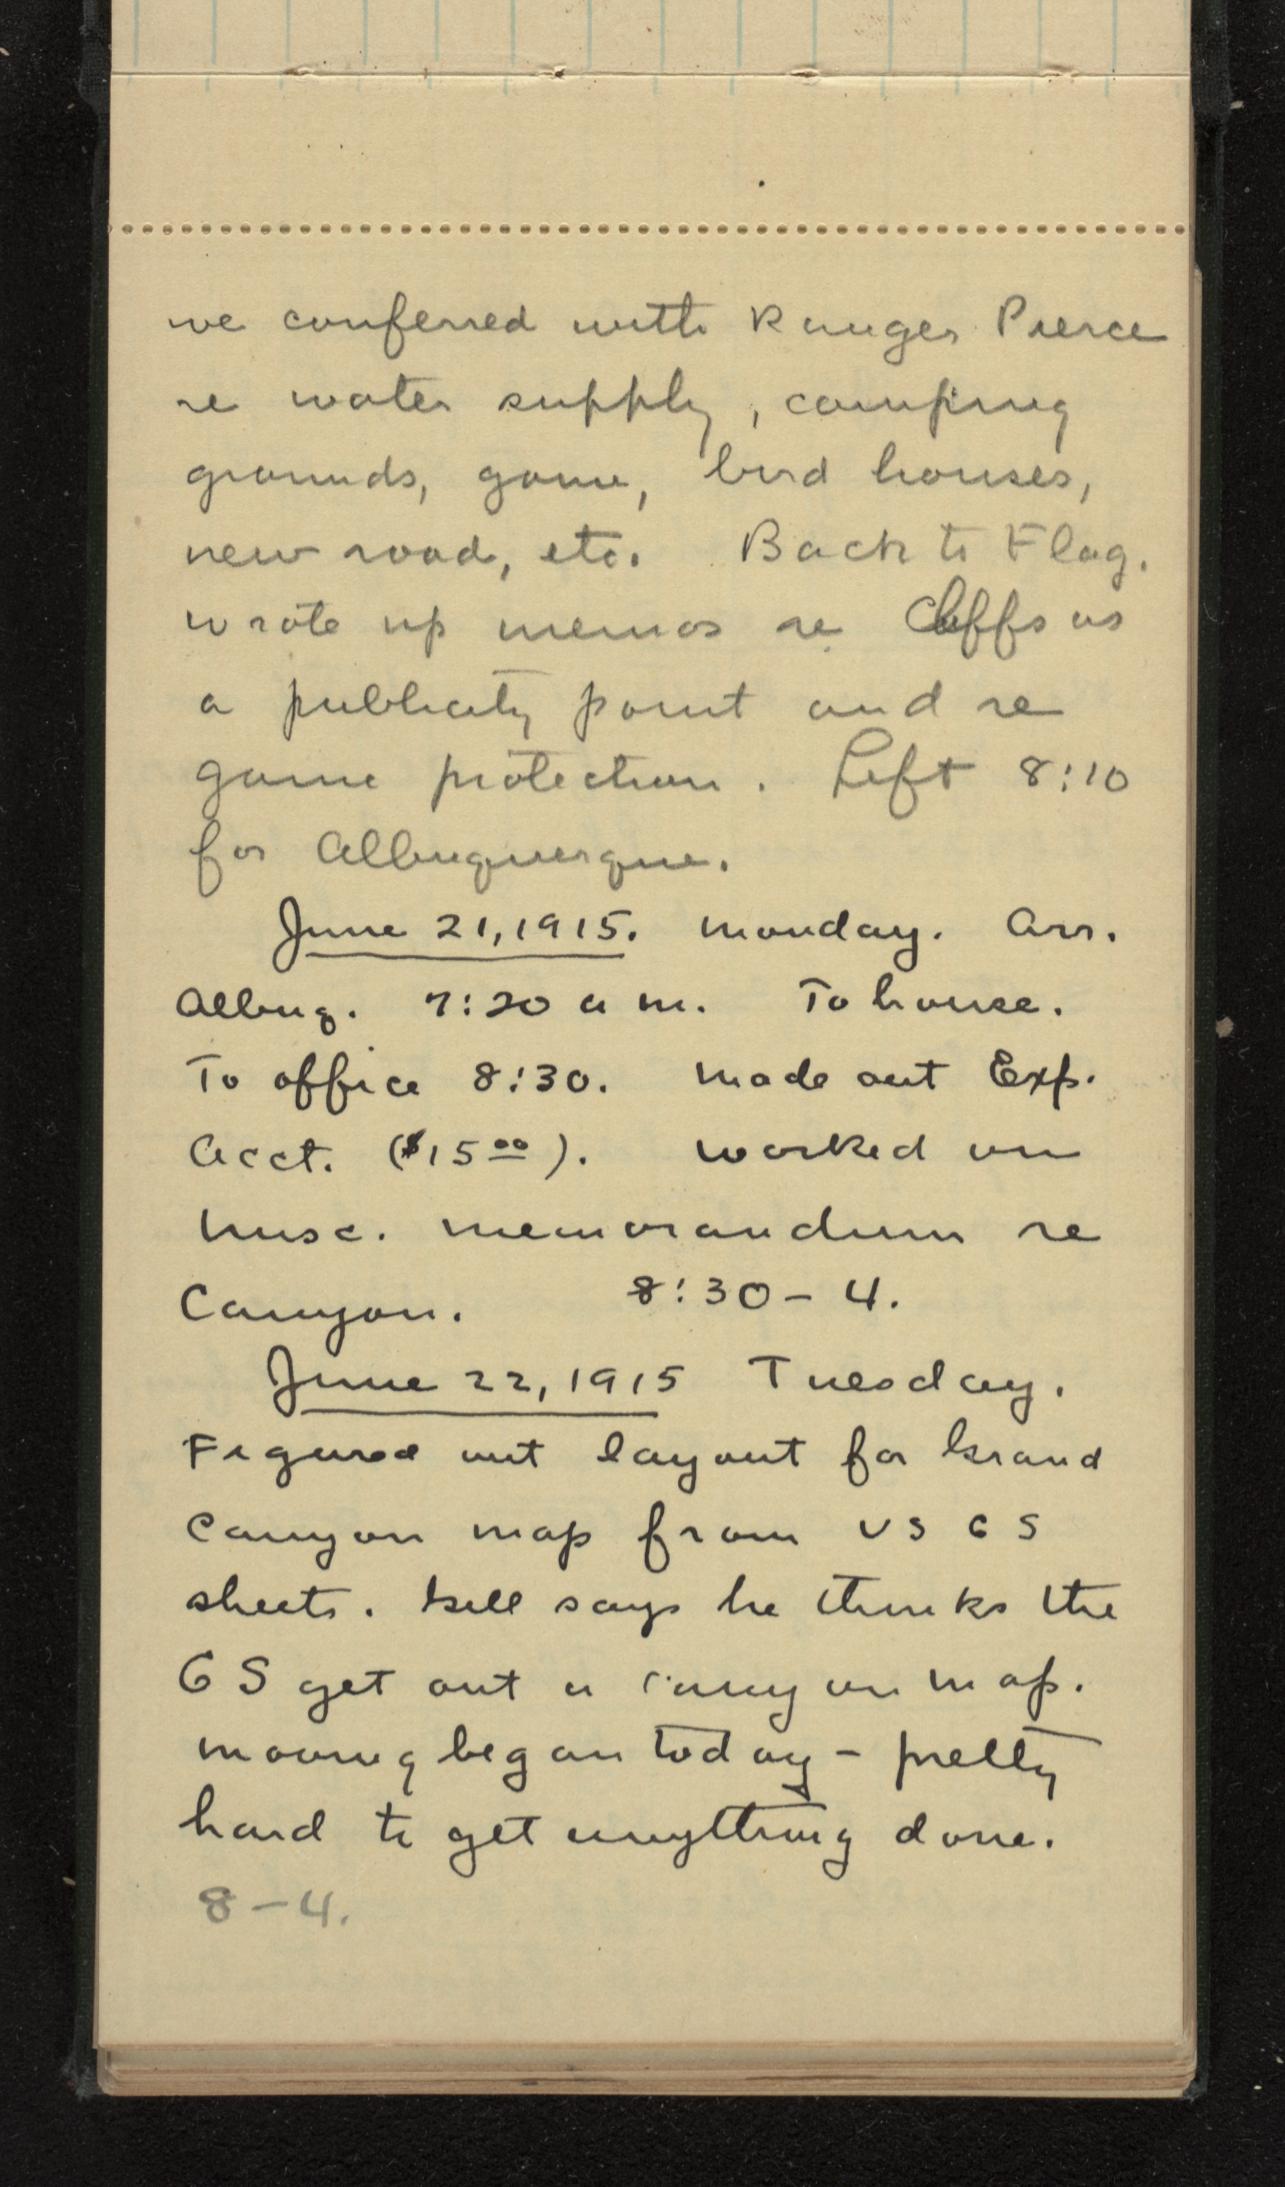 we conferred with Ranger Pierce
re water supply, camping
grounds, game, bird houses,
new road, etc. Back to Flag.
wrote up memos re Cliffs as
a publicity point and re
game protection. Left 8:10
for Albuquerque.
June 21, 1915. Monday. Arr.
Albuq. 7:20 a m. To house.
To office 8:30. Made out Exp.
Acct. ($15.00). Worked on
misc. memorandum re
Canyon. 8:30 - 4.
June 22, 1915 Tuesday.
Figured out layout for Grand
Canyon map from US GS
sheets. Gill says he thinks the
GS get out a Canyon map.
Moving began today - pretty
hard to get anything done.
8 - 4.